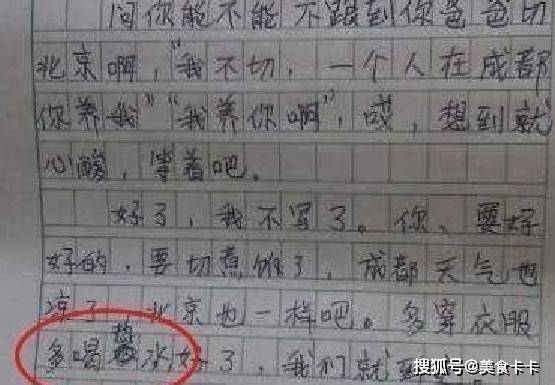 问你能不能不跟到你爸爸切
北京啊，“我不切，一个人在成都
你养我”“我养你啊”，哎，想到就
心酸，等着吧。
好了，我不写了。你、要好
好的，要切煮饭了，成都天气也
凉了，北京也一样吧。多穿衣服
多喝热水好了，我们就到
搜狐号@美食卡卡